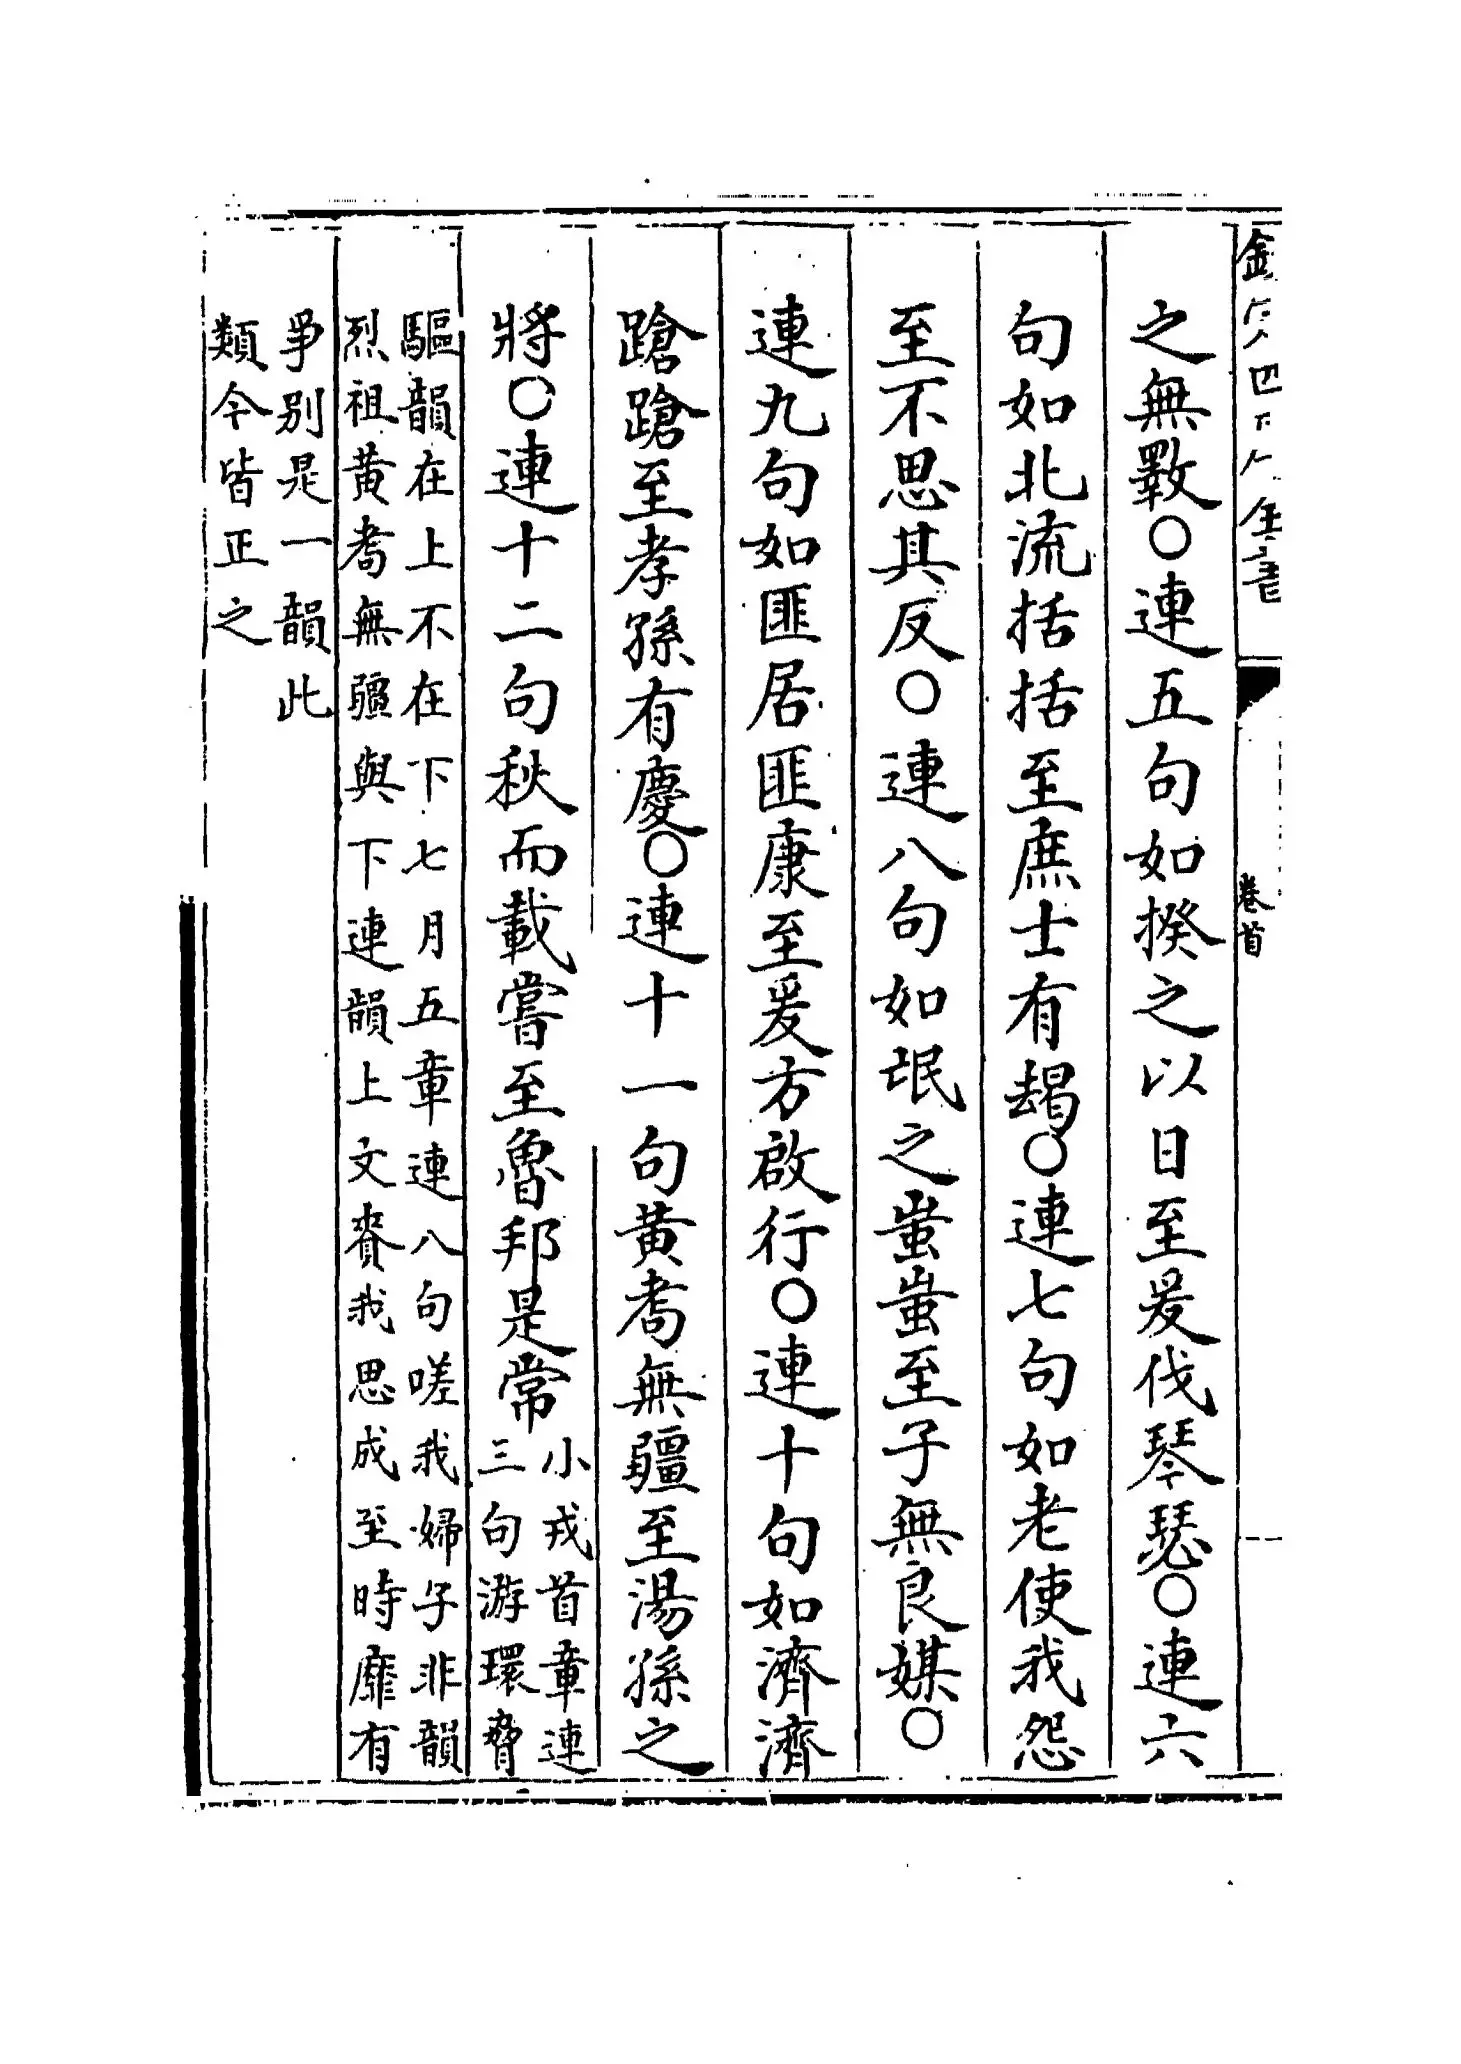 欽定四庫全書
卷首
之無斁○連五句如揆之以日至爰伐琴瑟○連六
句如北流括括至庶士有朅○連七句如老使我怨
至不思其反○連八句如氓之蚩蚩至子無良媒○
連九句如匪居匪康至爰方啟行○連十句如濟濟
蹌蹌至孝孫有慶○連十一句黃耇無疆至湯孫之
將○連十二句秋而載嘗至魯邦是常
小戎首章連
三句游環脅
驅韻在上不在下七月五章連八句嗟我婦子非韻
烈祖黃耇無疆與下連韻上文賚我思成至時靡有
爭別是一韻此
類今皆正之